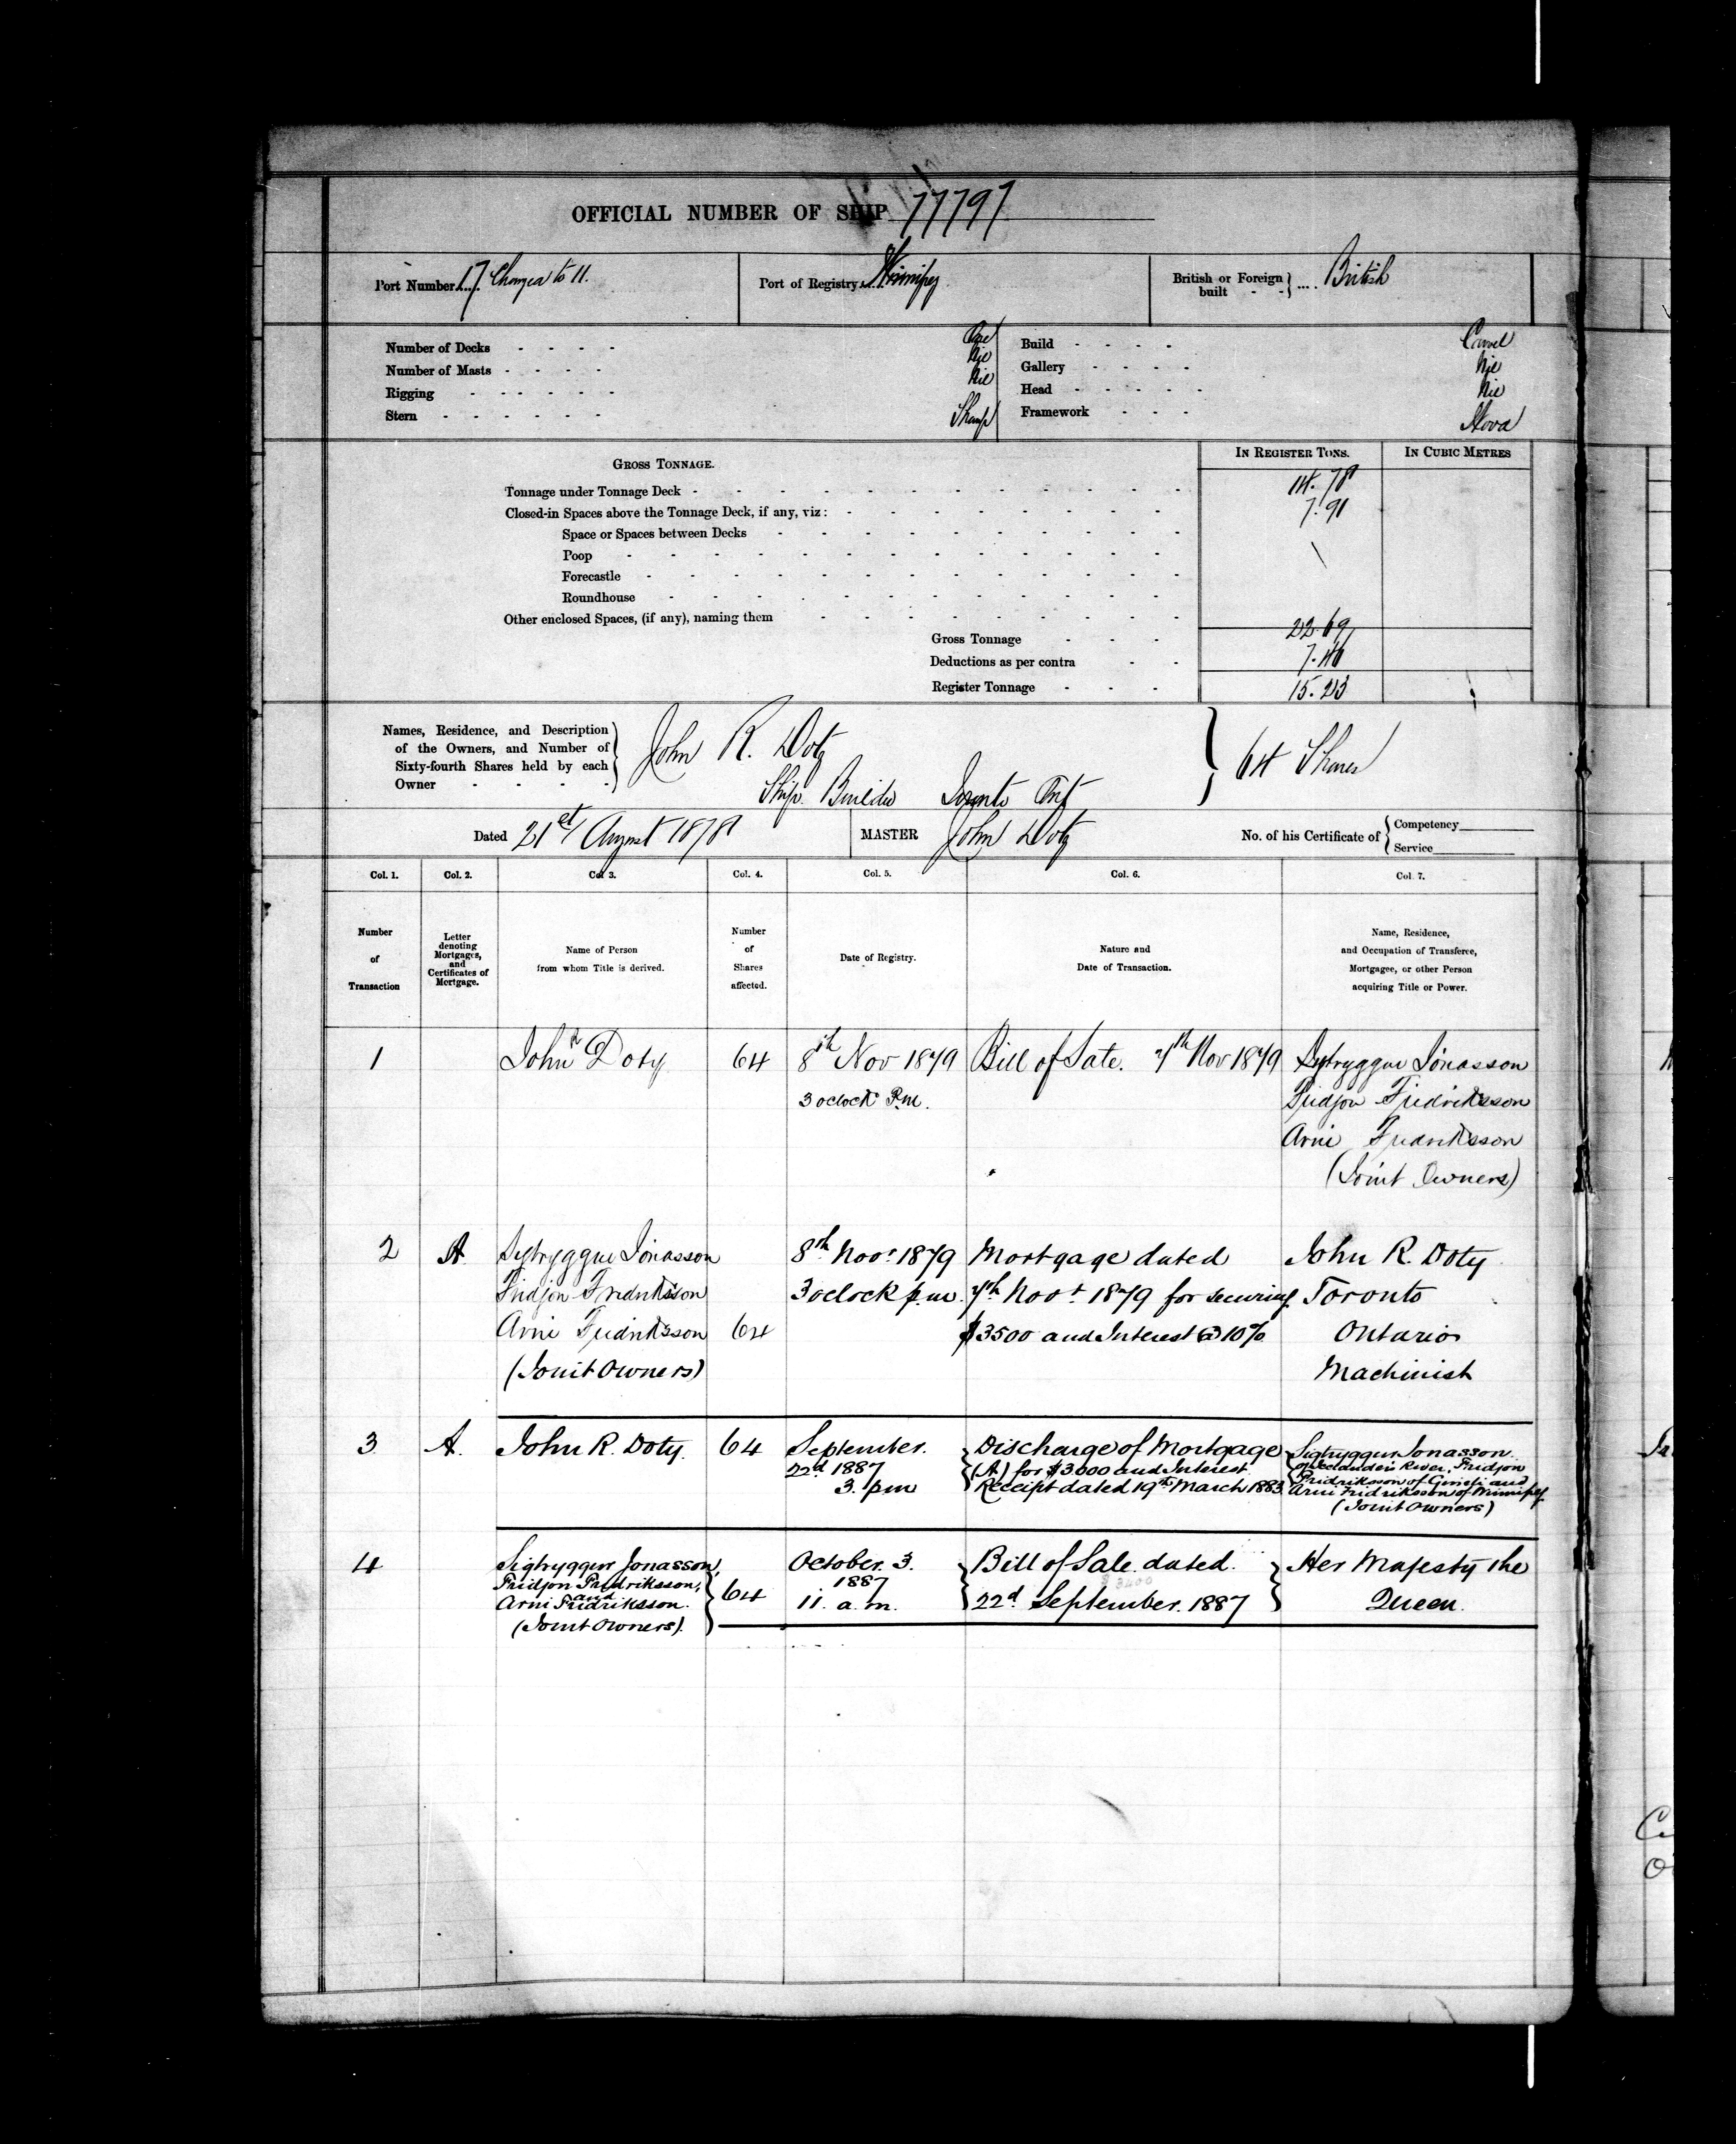 OFFICIAL NUMBER OF SHIP 77797
Port Number.... 17 Changed to 11. Port of Registry.... Winnipeg British or Foreign built - - .... British
Number of Decks - - - - One Build - - - - Carvel
Number of Masts - - - - Nil Gallery - - - - Nil
Rigging - - - - - - Nil Head - - - - - Nil
Stern - - - - - - Sharp Framework - - - Wood
GROSS TONNAGE. IN REGISTER TONS. IN CUBIC METRES
Tonnage under Tonnage Deck - - - - 14.78
Closed-in Spaces above the Tonnage Deck, if any, viz: - - - - 7.91
Space or Spaces between Decks - - - -
Poop - - - -
Forecastle - - - -
Roundhouse - - - -
Other enclosed Spaces, (if any), naming them - - - -
Gross Tonnage - - - 22.69
Deductions as per contra - - 7.46
Register Tonnage - - - 15.23
Names, Residence, and Description
of the Owners, and Number of
Sixty-fourth Shares held by each
Owner - - - -
John R. Doty
Ship Builder Toronto Ont
64 Shares
Dated 21st August 1878 MASTER John Doty No. of his Certificate of Competency
Service
Col. 1. Col. 2. Col 3. Col. 4. Col. 5. Col. 6. Col 7.
Number of Transaction
Letter denoting Mortgages, and Certificates of Mortgage.
Name of Person from whom Title is derived.
Number of Shares affected.
Date of Registry.
Nature and Date of Transaction.
Name, Residence, and Occupation of Transferee, Mortgagee, or other Person acquiring Title or Power.
1 John R Doty 64 8th Nov 1879 Bill of Sale. 7th Nov 1879 Sigtryggur Jónasson
3 oclock P.m. Fridjon Fridriksson
Arni Fridriksson
(Joint Owners)
2 A Sigtryggur Jónasson 8th Novr 1879 Mortgage dated John R. Doty
Fridjon Fridriksson 3 oclock p.m. 7th Novr 1879 for securing Toronto
Arni Fridriksson 64 $3500 and Interest @ 10% Ontario
(Joint Owners) Machinist
3 A. John R. Doty. 64 September. Discharge of Mortgage Sigtryggur Jonasson
22d 1887 (A) for $3.000 and Interest of Icelander's River, Fridjon
3. pm Receipt dated 19th March 1883 Fridriksson of Gimli and
Arni Fridriksson of Winnipeg
(Joint Owners)
4 Sigtryggur Jonasson, October. 3. Bill of Sale dated. Her Majesty the
Fridjon Fridriksson, and 64 1887
Arni Fridriksson. 11. a.m. 22d September. 1887 Queen.
(Joint Owners).